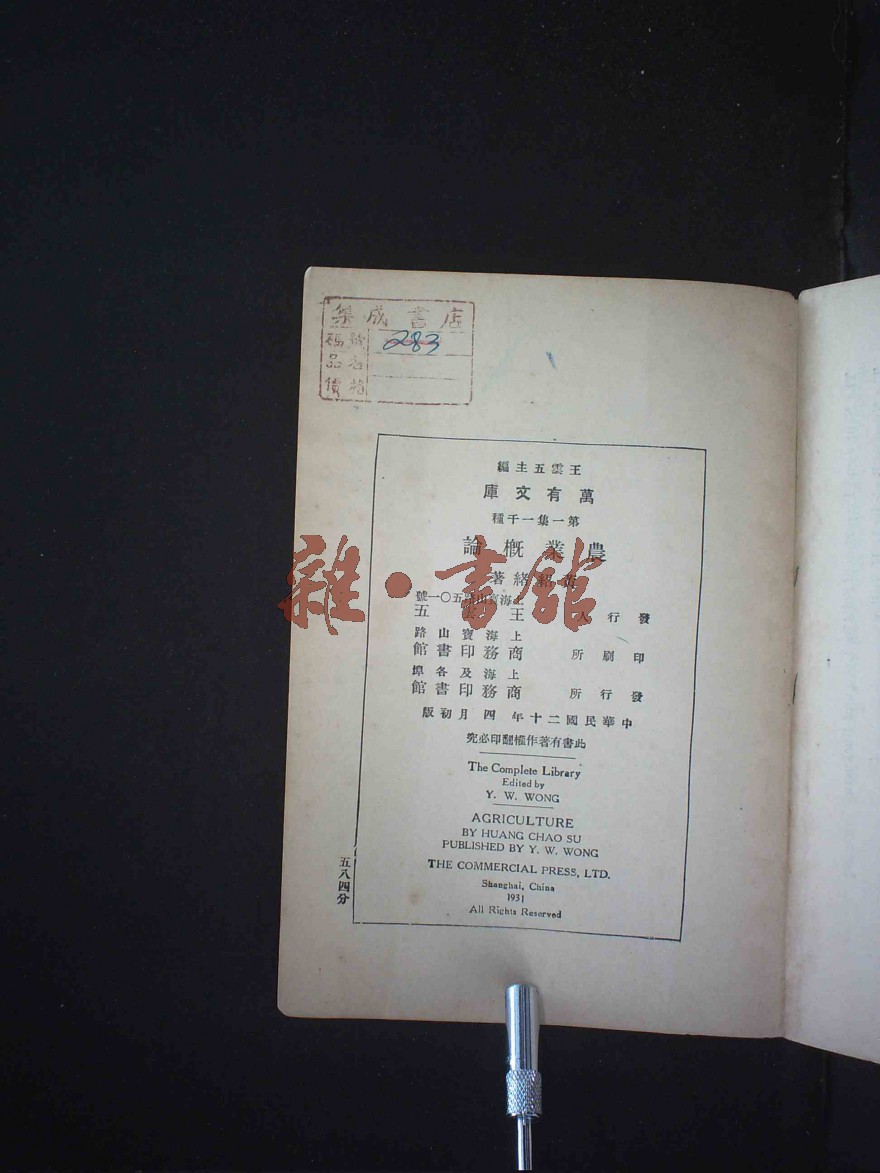 集成書店
號碼 283
品名
價格
王雲五主編
萬有文庫
第一集一千種
農業概論
黃紹緒著
上海寶山路五〇一號
發行人 王雲五
上海寶山路
印刷所 商務印書館
上海及各埠
發行所 商務印書館
中華民國二十年四月初版
此書有著作權翻印必究
The Complete Library
Edited by
Y. W. WONG
AGRICULTURE
BY HUANG CHAO SU
PUBLISHED BY Y. W. WONG
THE COMMERCIAL PRESS, LTD.
Shanghai, China
1931
All Rights Reserved
五八四分
雜·書館